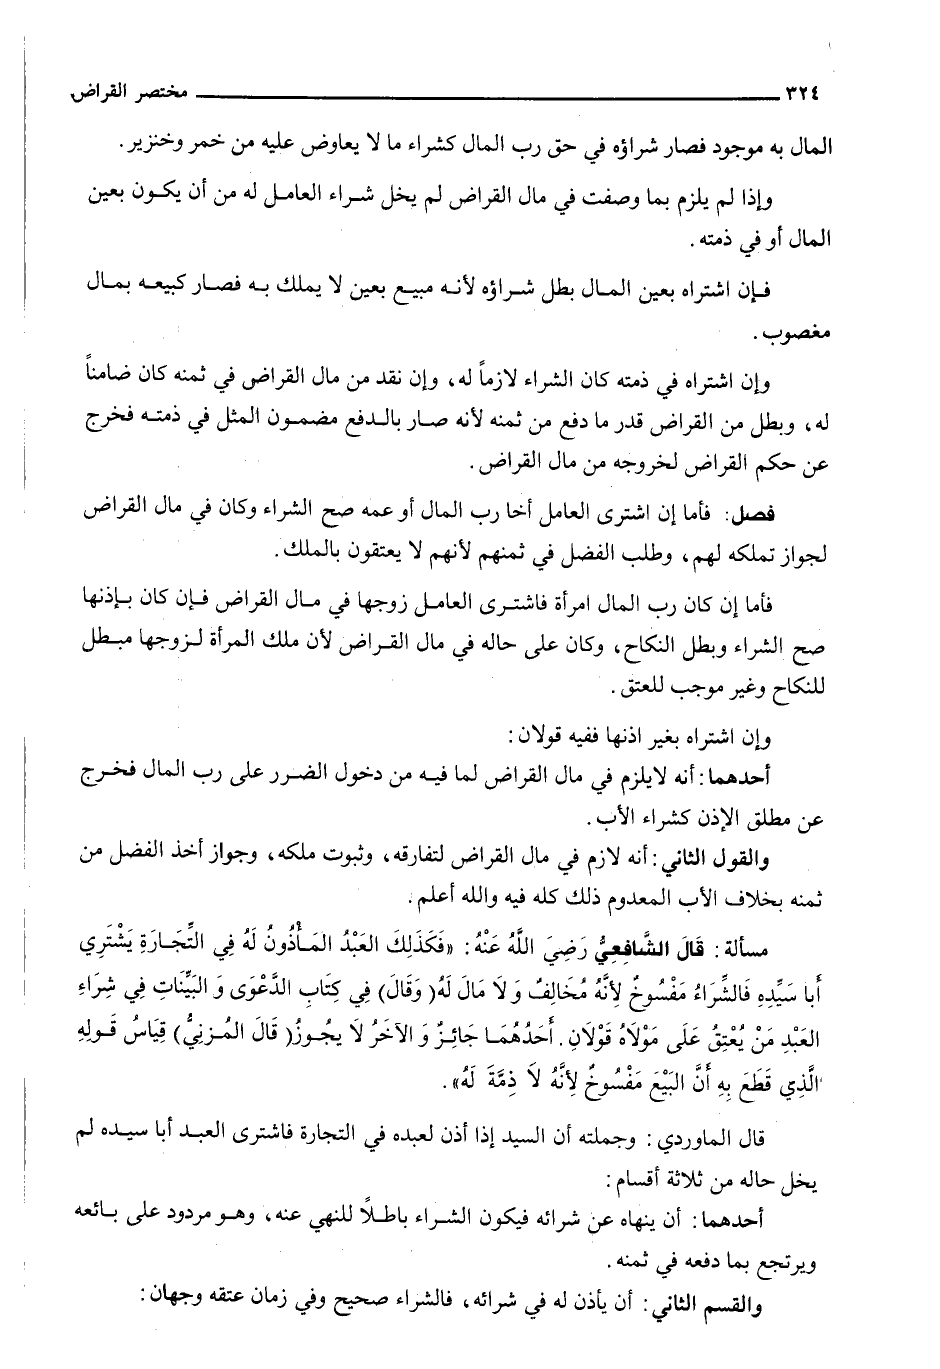 ٣٢٤ مختصر القراض
المال به موجود فصار شراؤه في حق رب المال كشراء ما لا يعاوض عليه من خمر وخنزير.
وإذا لم يلزم بما وصفت في مال القراض لم يخل شراء العامل له من أن يكون بعين
المال أو في ذمته.
فإن اشتراه بعين المال بطل شراؤه لأنه مبيع بعين لا يملك به فصار كبيعه بمال
مغصوب.
وإن اشتراه في ذمته كان الشراء لازماً له، وإن نقد من مال القراض في ثمنه كان ضامناً
له، وبطل من القراض قدر ما دفع من ثمنه لأنه صار بالدفع مضمون المثل في ذمته فخرج
عن حكم القراض لخروجه من مال القراض.
فصل: فأما إن اشترى العامل أخا رب المال أو عمه صح الشراء وكان في مال القراض
لجواز تملكه لهم، وطلب الفضل في ثمنهم لأنهم لا يعتقون بالملك.
فأما إن كان رب المال امرأة فاشترى العامل زوجها في مال القراض فإن كان بإذنها
صح الشراء وبطل النكاح، وكان على حاله في مال القراض لأن ملك المرأة لزوجها مبطل
للنكاح وغير موجب للعتق.
وإن اشتراه بغير اذنها ففيه قولان:
أحدهما: أنه لايلزم في مال القراض لما فيه من دخول الضرر على رب المال فخرج
عن مطلق الإذن كشراء الأب.
والقول الثاني: أنه لازم في مال القراض لتفارقه، وثبوت ملكه، وجواز أخذ الفضل من
ثمنه بخلاف الأب المعدوم ذلك كله فيه والله أعلم.
مسألة: قَالَ الشَّافِعِيُّ رَضِيَ اللَّهُ عَنْهُ: «فَكَذَلِكَ العَبْدُ المَأْذُونُ لَهُ فِي التِّجَارَةِ يَشْتَرِي
أَبا سَيِّدِهِ فَالشِّرَاءُ مَفْسُوخٌ لِأنَّهُ مُخَالِفٌ وَ لَا مَالَ لَهُ( وَقَالَ) فِي كِتَابِ الدَّعْوَى وَ البَيِّنَاتِ فِي شِرَاءِ
العَبْدِ مَنْ يُعْتِقُ عَلَى مَوْلَاهُ قَوْلَانِ. أَحَدُهُمَا جَائِزٌ وَ الآخَرُ لَا يجُوزُ( قَالَ المُزنِيُّ) قِيَاسُ قَولِهِ
الَّذِي قَطَعَ بِهِ أَنَّ البَيْعَ مَفْسُوخٌ لِأَنَّهُ لَا ذِمَّةَ لَهُ».
قال الماوردي: وجملته أن السيد إذا أذن لعبده في التجارة فاشترى العبد أبا سيده لم
يخل حاله من ثلاثة أقسام:
أحدهما: أن ينهاه عن شرائه فيكون الشراء باطلاً للنهي عنه، وهو مردود على بائعه
ويرتجع بما دفعه في ثمنه.
والقسم الثاني: أن يأذن له في شرائه، فالشراء صحيح وفي زمان عتقه وجهان: